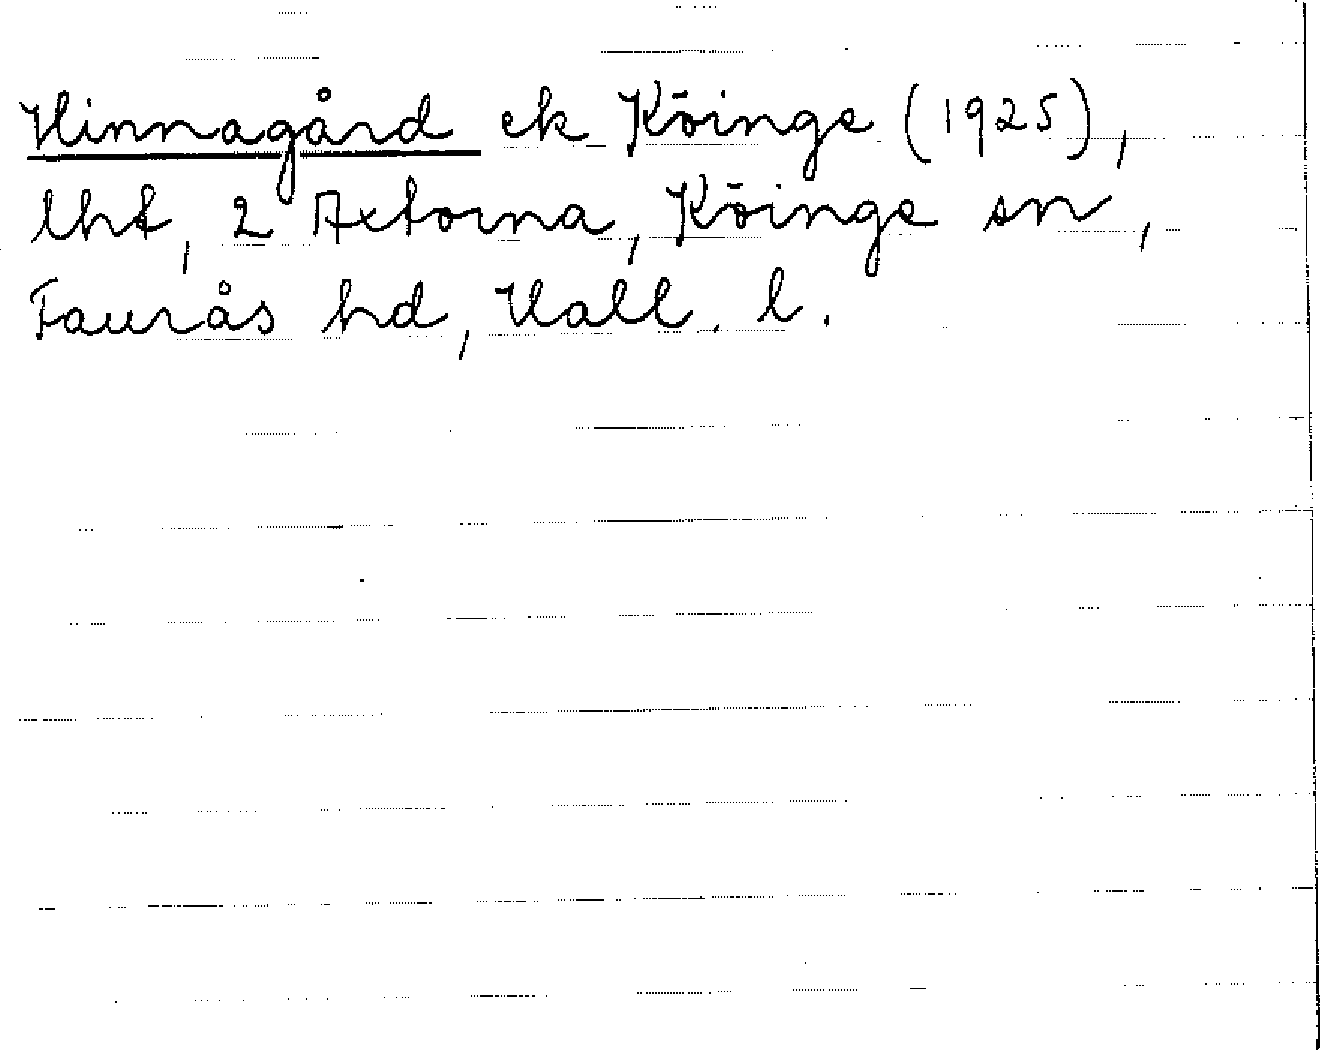 Hinnagård ek Köinge (1925),
lht, 2 Axtorna, Köinge sn,
Faurås hd, Hall. l.